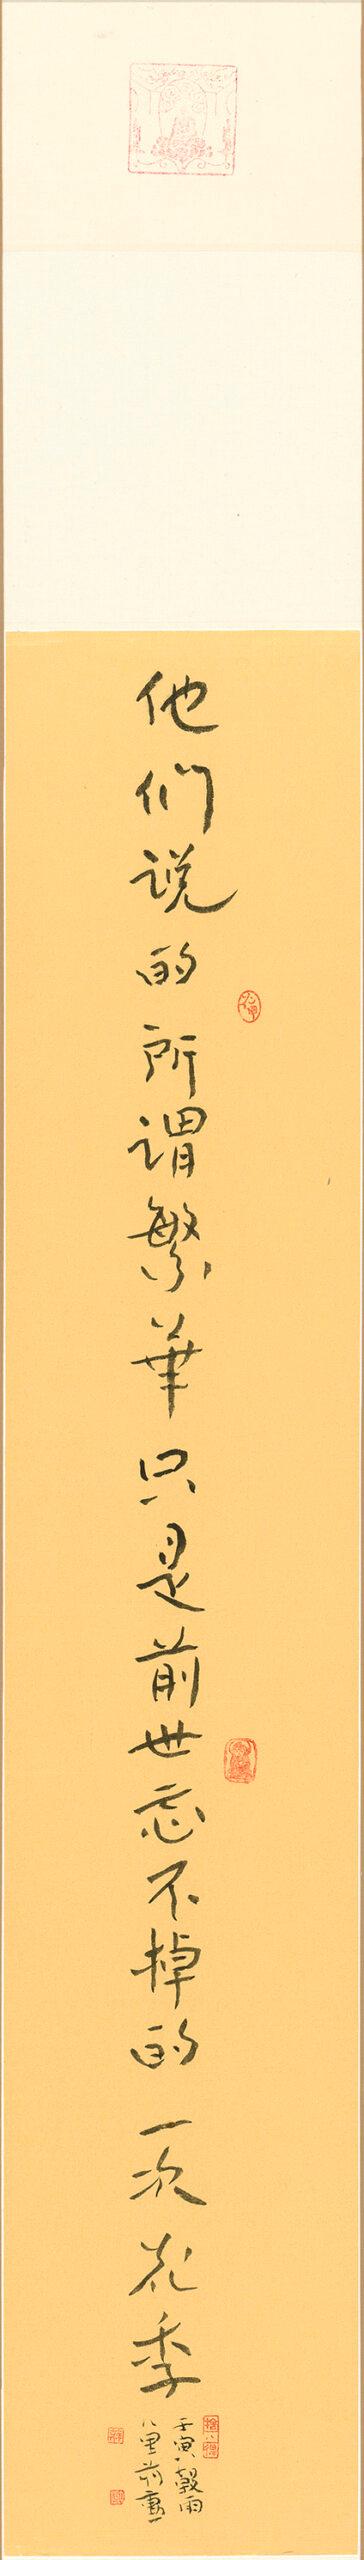 他们说的所谓繁華只是前世忘不掉的一次花季
壬寅穀雨
八里蒋勳